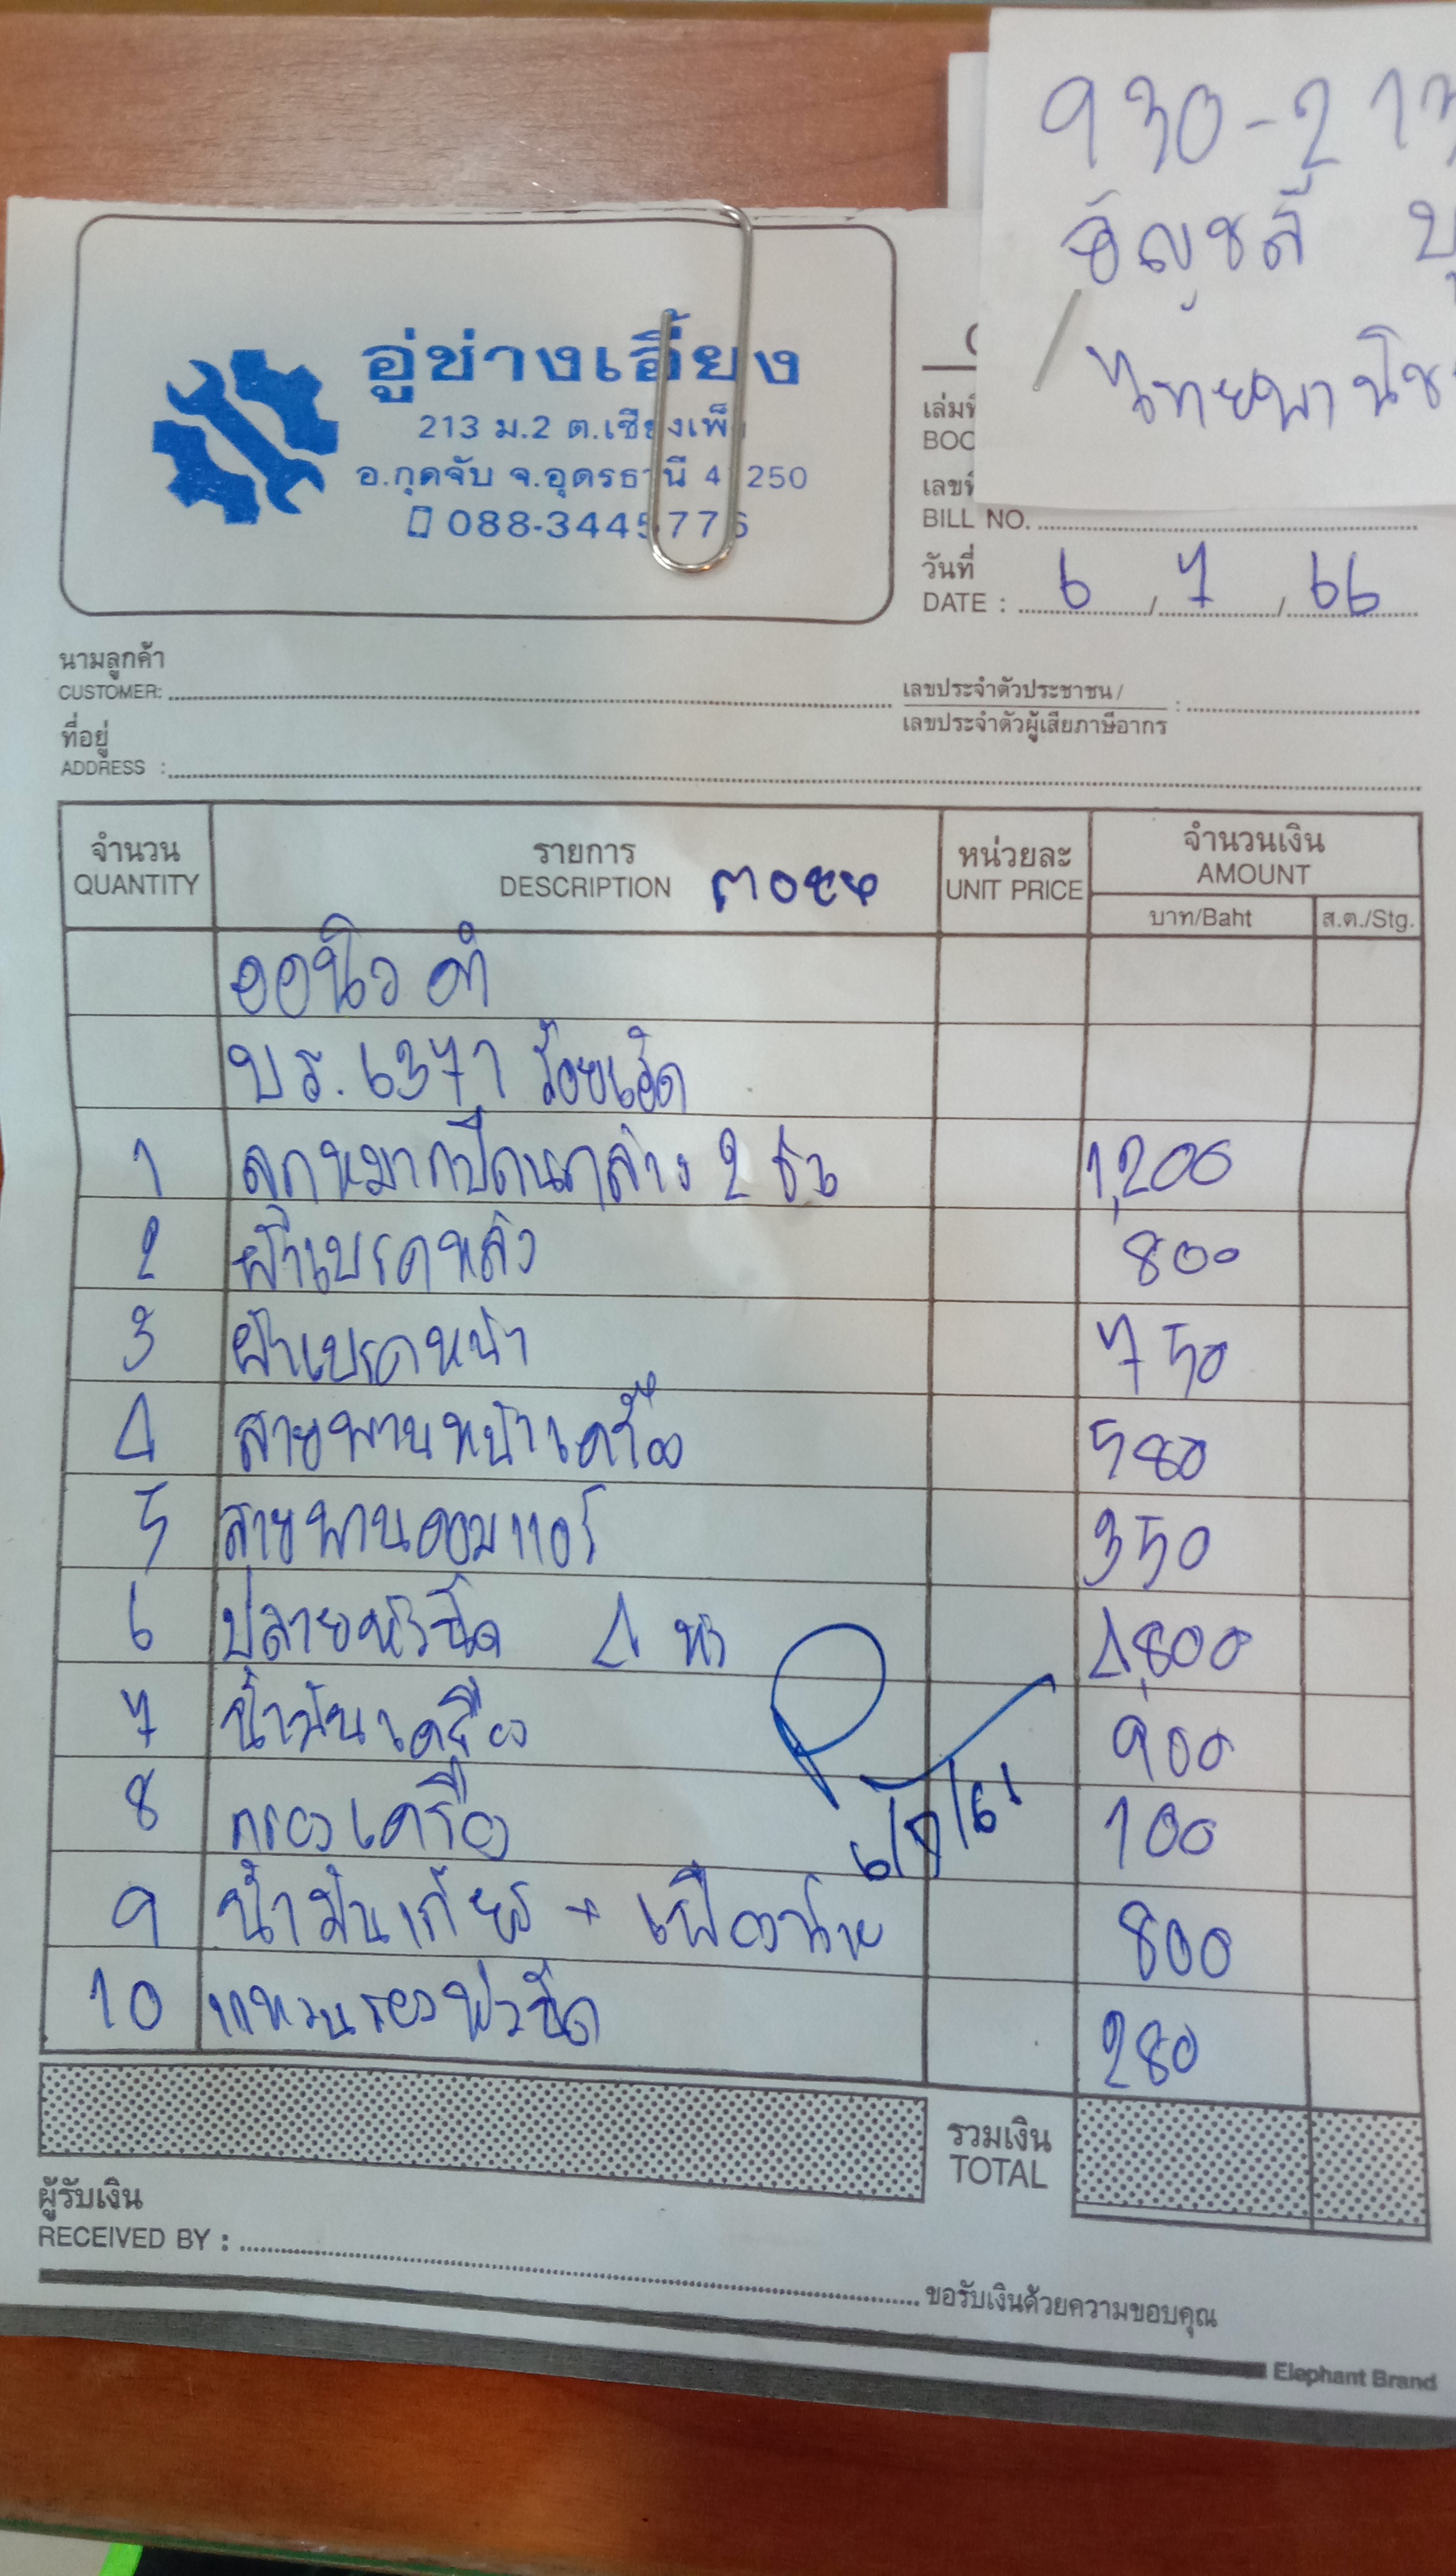 930-217
อัญชลี บุ
ไทยพานิช
อู่ช่างเอี้ยง
213 ม.2 ต.เชียงเพ็ง
อ.กุดจับ จ.อุดรธานี 41250
088-3445776
เล่มที่
BOO
เลขที่
BILL NO.
วันที่
DATE : 6 / 7 / 66
นามลูกค้า
CUSTOMER:
เลขประจำตัวประชาชน /
เลขประจำตัวผู้เสียภาษีอากร :
ที่อยู่
ADDRESS :
จำนวน รายการ หน่วยละ จำนวนเงิน
QUANTITY DESCRIPTION UNIT PRICE AMOUNT
บาท/Baht ส.ต./Stg.
ออนิว ดำ
บร.6371 ร้อยเอ็ด
1 ลูกหมากปีกนกล่าง 2 ข้าง 1,200
2 ผ้าเบรคหลัง 800
3 ผ้าเบรคหน้า 750
4 สายพานหน้าเครื่อง 580
5 สายพานคอมแอร์ 350
6 ปลายหัวฉีด 4 หัว 4,800
7 น้ำมันเครื่อง 900
8 กรองเครื่อง 100
6/7/66
9 น้ำมันเกียร์ + เฟืองท้าย 800
10 แหวนรองหัวฉีด 280
รวมเงิน
TOTAL
ผู้รับเงิน
RECEIVED BY :
ขอรับเงินด้วยความขอบคุณ
Elephant Brand